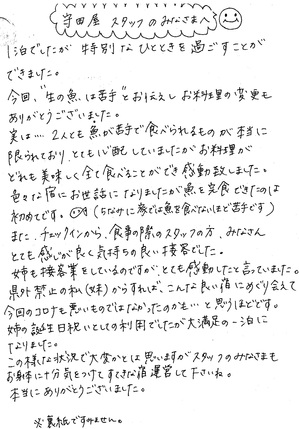 守田屋 スタッフのみなさまへ
1泊でしたが 特別なひとときを過ごすことが
できました。
今回、"生の魚は苦手"とお伝えしお料理の変更も
ありがとうございました。
実は…2人とも魚が苦手で食べられるものが本当に
限られており、とても心配していましたがお料理が
どれも美味しく全て食べることができ感動致しました。
色々な宿にお世話になりましたが魚を完食できたのは
初めてです。(ちなみに家では魚を食べないほど苦手です)
また、チェックインから、食事の際のスタッフの方、みなさん
とても感じが良く気持ちの良い接客でした。
姉も接客業をしているのですが、とても感動したと言っていました。
県外禁止の私(妹)からすれば、こんな良い宿にめぐり会えて
今回のコロナも悪いものではなかったのかも…と思うほどです。
姉の誕生日祝いとしての利用でしたが大満足の一泊に
なりました。
この様な状況で大変かとは思いますがスタッフのみなさまも
お身体に十分気をつけてすてきな宿運営して下さいね。
本当にありがとうございました。
※裏紙ですみません。